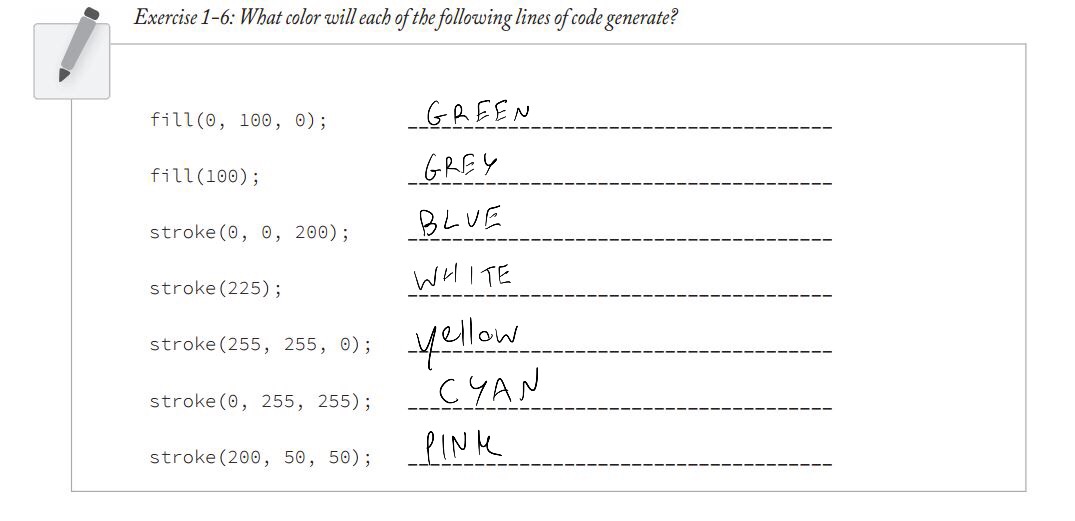 Exercise 1-6: What color will each of the following lines of code generate?
fill(0, 100, 0); GREEN
fill(100); GREY
stroke(0, 0, 200); BLUE
stroke(225); WHITE
stroke(255, 255, 0); yellow
stroke(0, 255, 255); CYAN
stroke(200, 50, 50); PINK